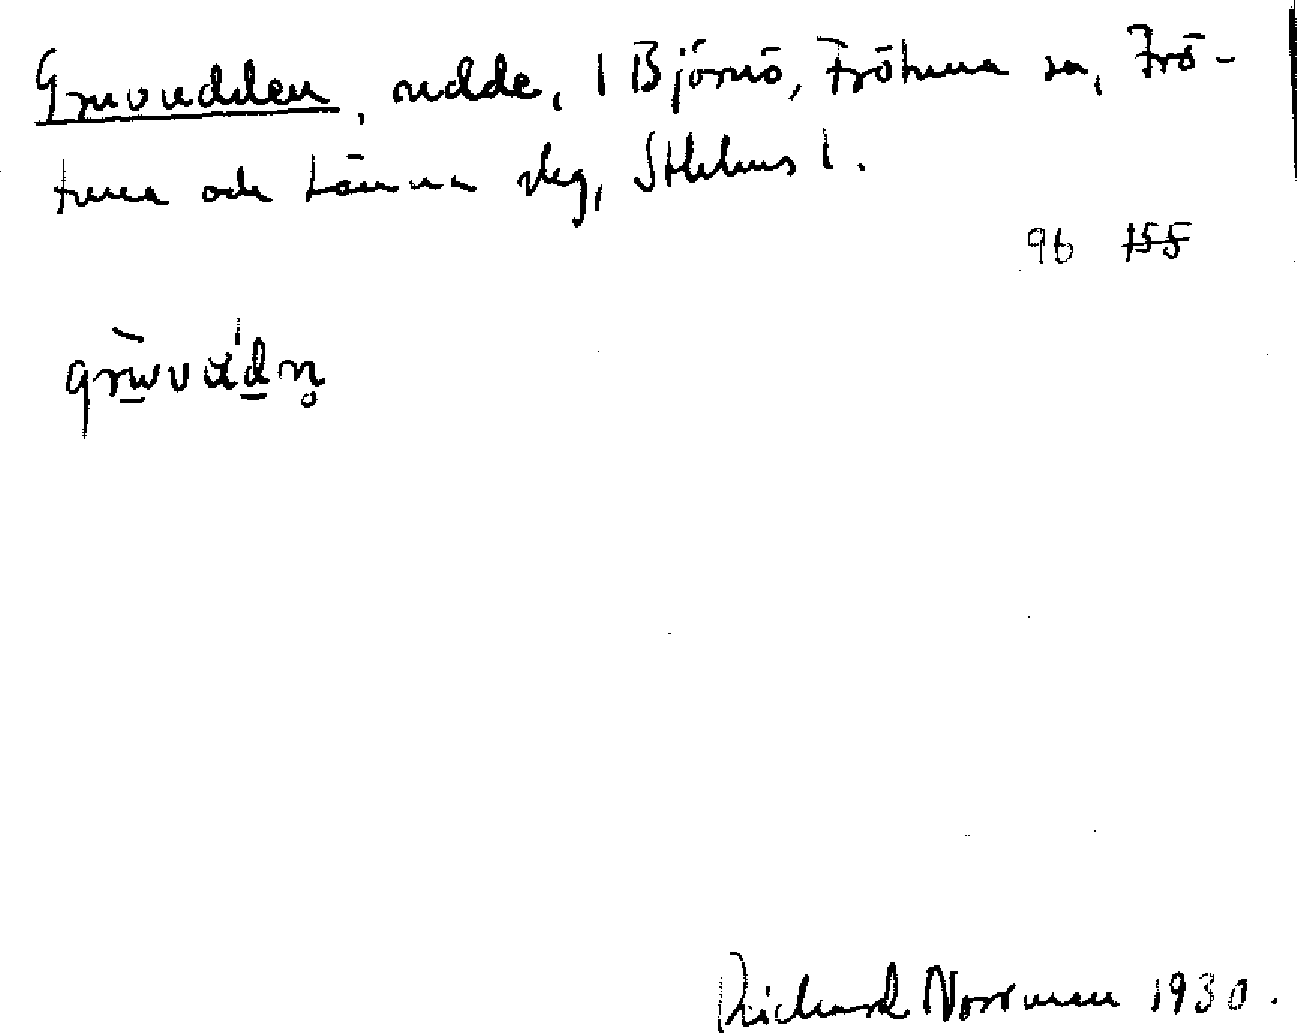 Gruvudden, udde, i Björnö, Frötuna sn, Frö-
tuna och Länna slg, Sthlms l.
96 155
grɯvudn̥
Richard Norrman 1930.